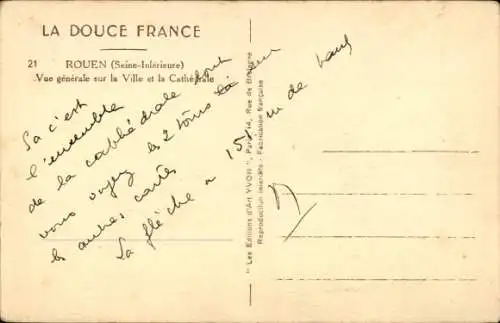 LA DOUCE FRANCE
21 ROUEN (Seine-Inférieure)
Vue générale sur la Ville et la Cathédrale
Sa c'est
l'ensemble
de la cathédrale tout
vous voyez les 2 tours sur
les autres cartes
La flèche a 151 m de haut
" Les Editions d'Art YVON ", Paris, 14, Rue de Bretagne
Reproduction interdite - Fabrication française